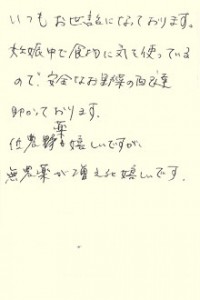 いつもお世話になっております。
妊娠中で食物に気を使っている
ので、安全なお野菜の配達
助かっております。
低農薬も嬉しいですが、
無農薬が増えると嬉しいです。